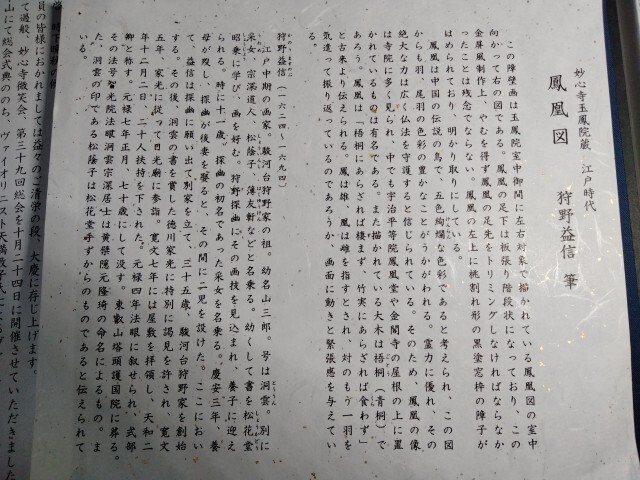 妙心寺玉鳳院蔵 江戸時代
鳳凰図 狩野益信 筆
この障壁画は玉鳳院室中御間に左右対象で描かれている鳳凰図の室中
向かって右の図である。鳳凰の足下は板張り階段状になっており、この
金屏風制作上、やむを得ず鳳凰の足先をトリミングしなければならなか
ったことは残念でならない。鳳凰の左上に桃割れ形の黒塗窓枠の障子が
はめられており、明かり取りにしている。
鳳凰は中国の伝説の鳥で、五色絢爛な色彩であると考えられ、この図
からも羽、尾羽の色彩の豊かなことがうかがわれる。霊力に優れ、その
絶大な力は広く仏法を守護すると信じられている。そのため、鳳凰の像
は寺院に多く見られ、中でも宇治平等院鳳凰堂や金閣寺の屋根の上に置
かれているものは有名である。また描かれている大木は梧桐（青桐）で
あろう。鳳凰は「梧桐にあらざれば棲まず、竹実にあらざれば食わず」
と古来より伝えられる。鳳は雄、凰は雌を指すとされ、対のもう一羽を
気遣って振り返っているのであろうか、画面に動きと緊張感を与えてい
る。
狩野益信（一六二四～一六九四）
江戸中期の画家。駿河台狩野家の祖。幼名山三郎。号は洞雲。別に
采女、宗深道人、松蔭子、薄友軒などと名乗る。幼くして書を松花堂
昭乗に学び、画を好む。狩野探幽にその画技を見込まれ、養子に迎え
られる。時に十一歳。探幽の初名であった采女を名乗る。慶安三年、養
母が歿し、探幽が後妻を娶ると、その間に二児を設けた。ここにおい
て、益信は探幽に願い出て別家を立て、三十五歳、駿河台狩野家を創始
する。その後、洞雲の書を賞した徳川家光に特別に謁見を許され、寛文
五年、家光に従って日光廟に参詣。寛文七年には屋敷を拝領し、天和二
年十二月二日、二十人扶持を下された。元禄四年法眼に叙せられ、式部
卿と称す。元禄七年正月、七十歳にして没す。東叡山塔頭護国院に葬る。
その法号智光院法眼洞雲宗深居士は黄檗隠元隆琦の命名によるもの。ま
た、洞雲の印である松蔭子は松花堂手ずからのものであると伝えられて
いる。
員の皆様におかれましては益々のご清栄の段、大慶に存じ上げます。
て過般、妙心寺微笑会、第三十九回総会を十月二十四日に開催させていただきました
山にて総会式典ののち、ヴァイオリニスト天満敦子氏に